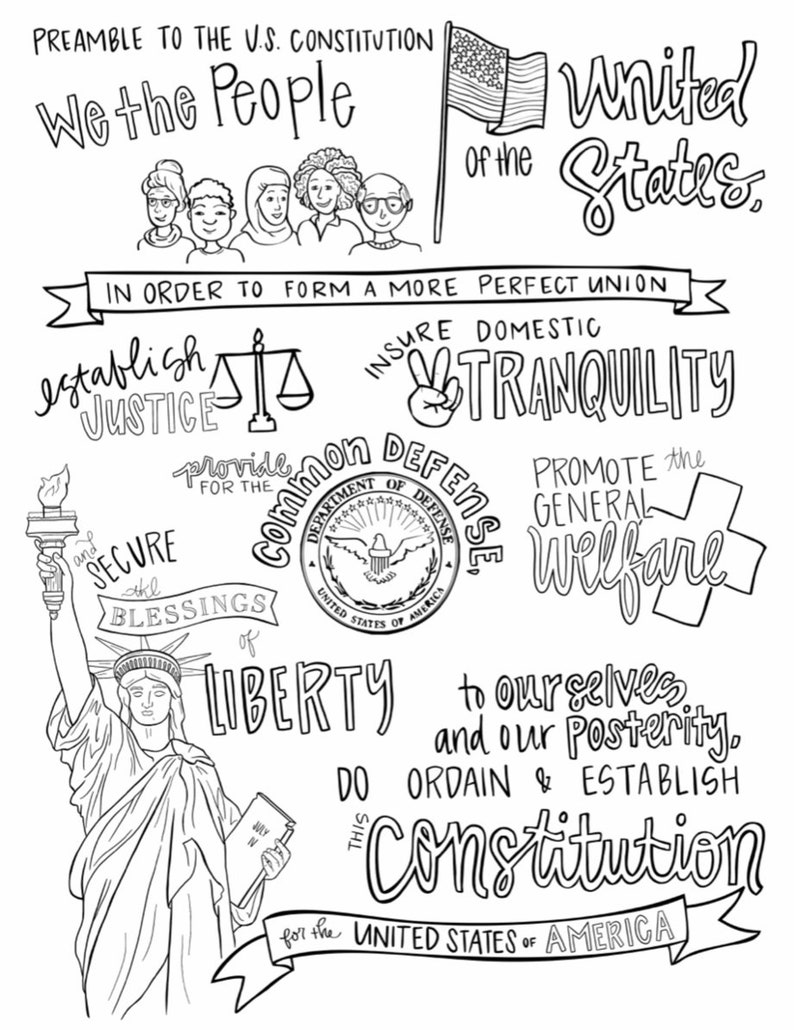 PREAMBLE TO THE U.S. CONSTITUTION
We the People
of the
United
States,
IN ORDER TO FORM A MORE PERFECT UNION
establish
JUSTICE
INSURE DOMESTIC
TRANQUILITY
provide
FOR THE
COMMON DEFENSE,
DEPARTMENT OF DEFENSE
UNITED STATES OF AMERICA
PROMOTE the
GENERAL
Welfare
and
SECURE
the
BLESSINGS
of
LIBERTY
JULY
IV
to ourselves
and our Posterity,
DO ORDAIN & ESTABLISH
THIS
Constitution
for the UNITED STATES OF AMERICA